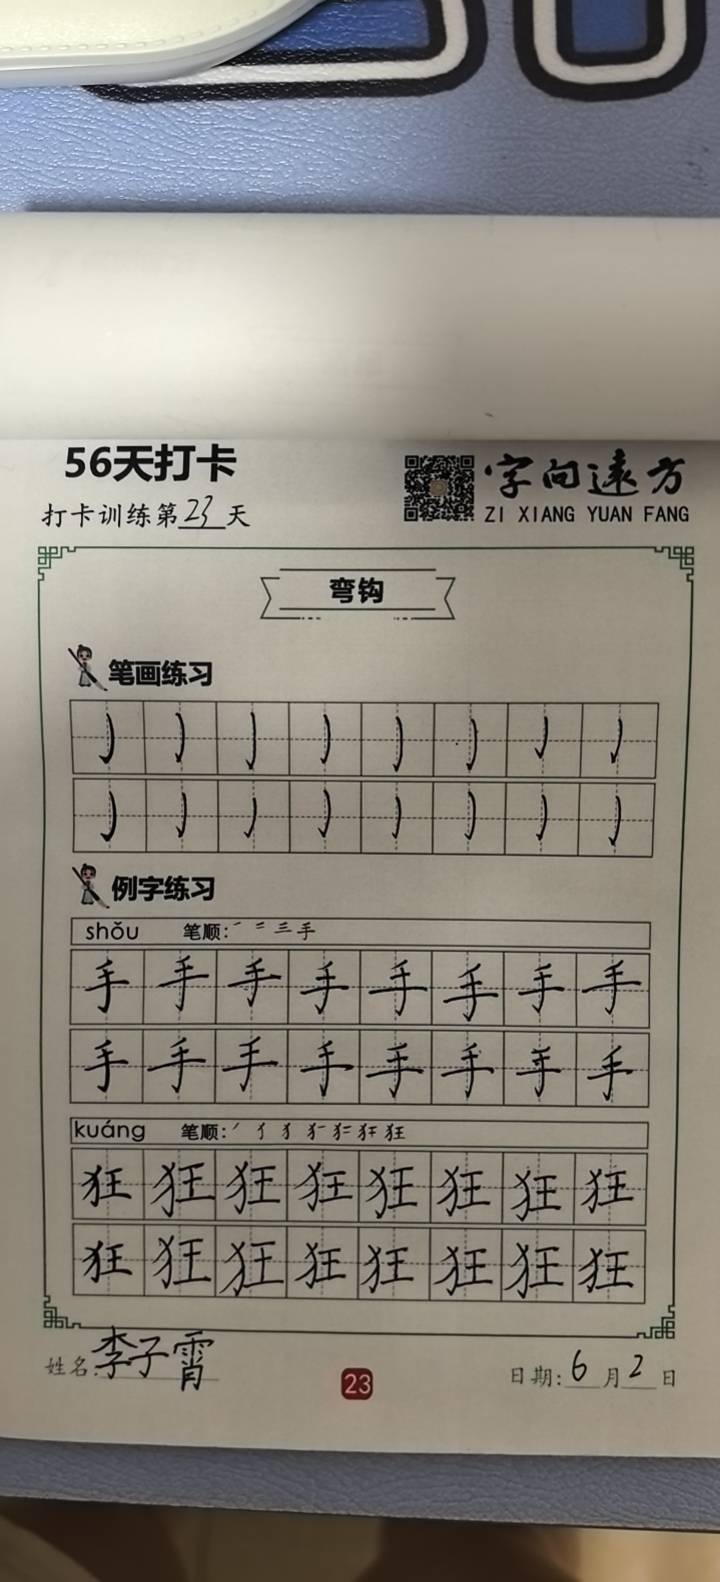 56天打卡
打卡训练第23天
字向远方
ZI XIANG YUAN FANG
弯钩
笔画练习
例字练习
shǒu 笔顺: 手
手 手 手 手 手 手 手 手
手 手 手 手 手 手 手 手
kuáng 笔顺: 狂
狂 狂 狂 狂 狂 狂 狂 狂
狂 狂 狂 狂 狂 狂 狂 狂
姓名:李子霄
23
日期:6月2日